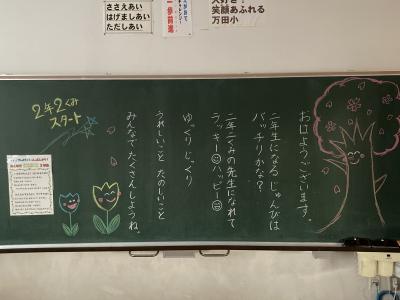 ささえあい
はげましあい
ただしあい
一歩前進
笑顔あふれる
万田小
2年2くみ
スタート
おはようございます。
二年生になる じゅんびは
バッチリかな？
二年二くみの先生になれて
ラッキー ハッピー
ゆっくり じっくり
うれしいこと たのしいこと
みんなで たくさんしようね。